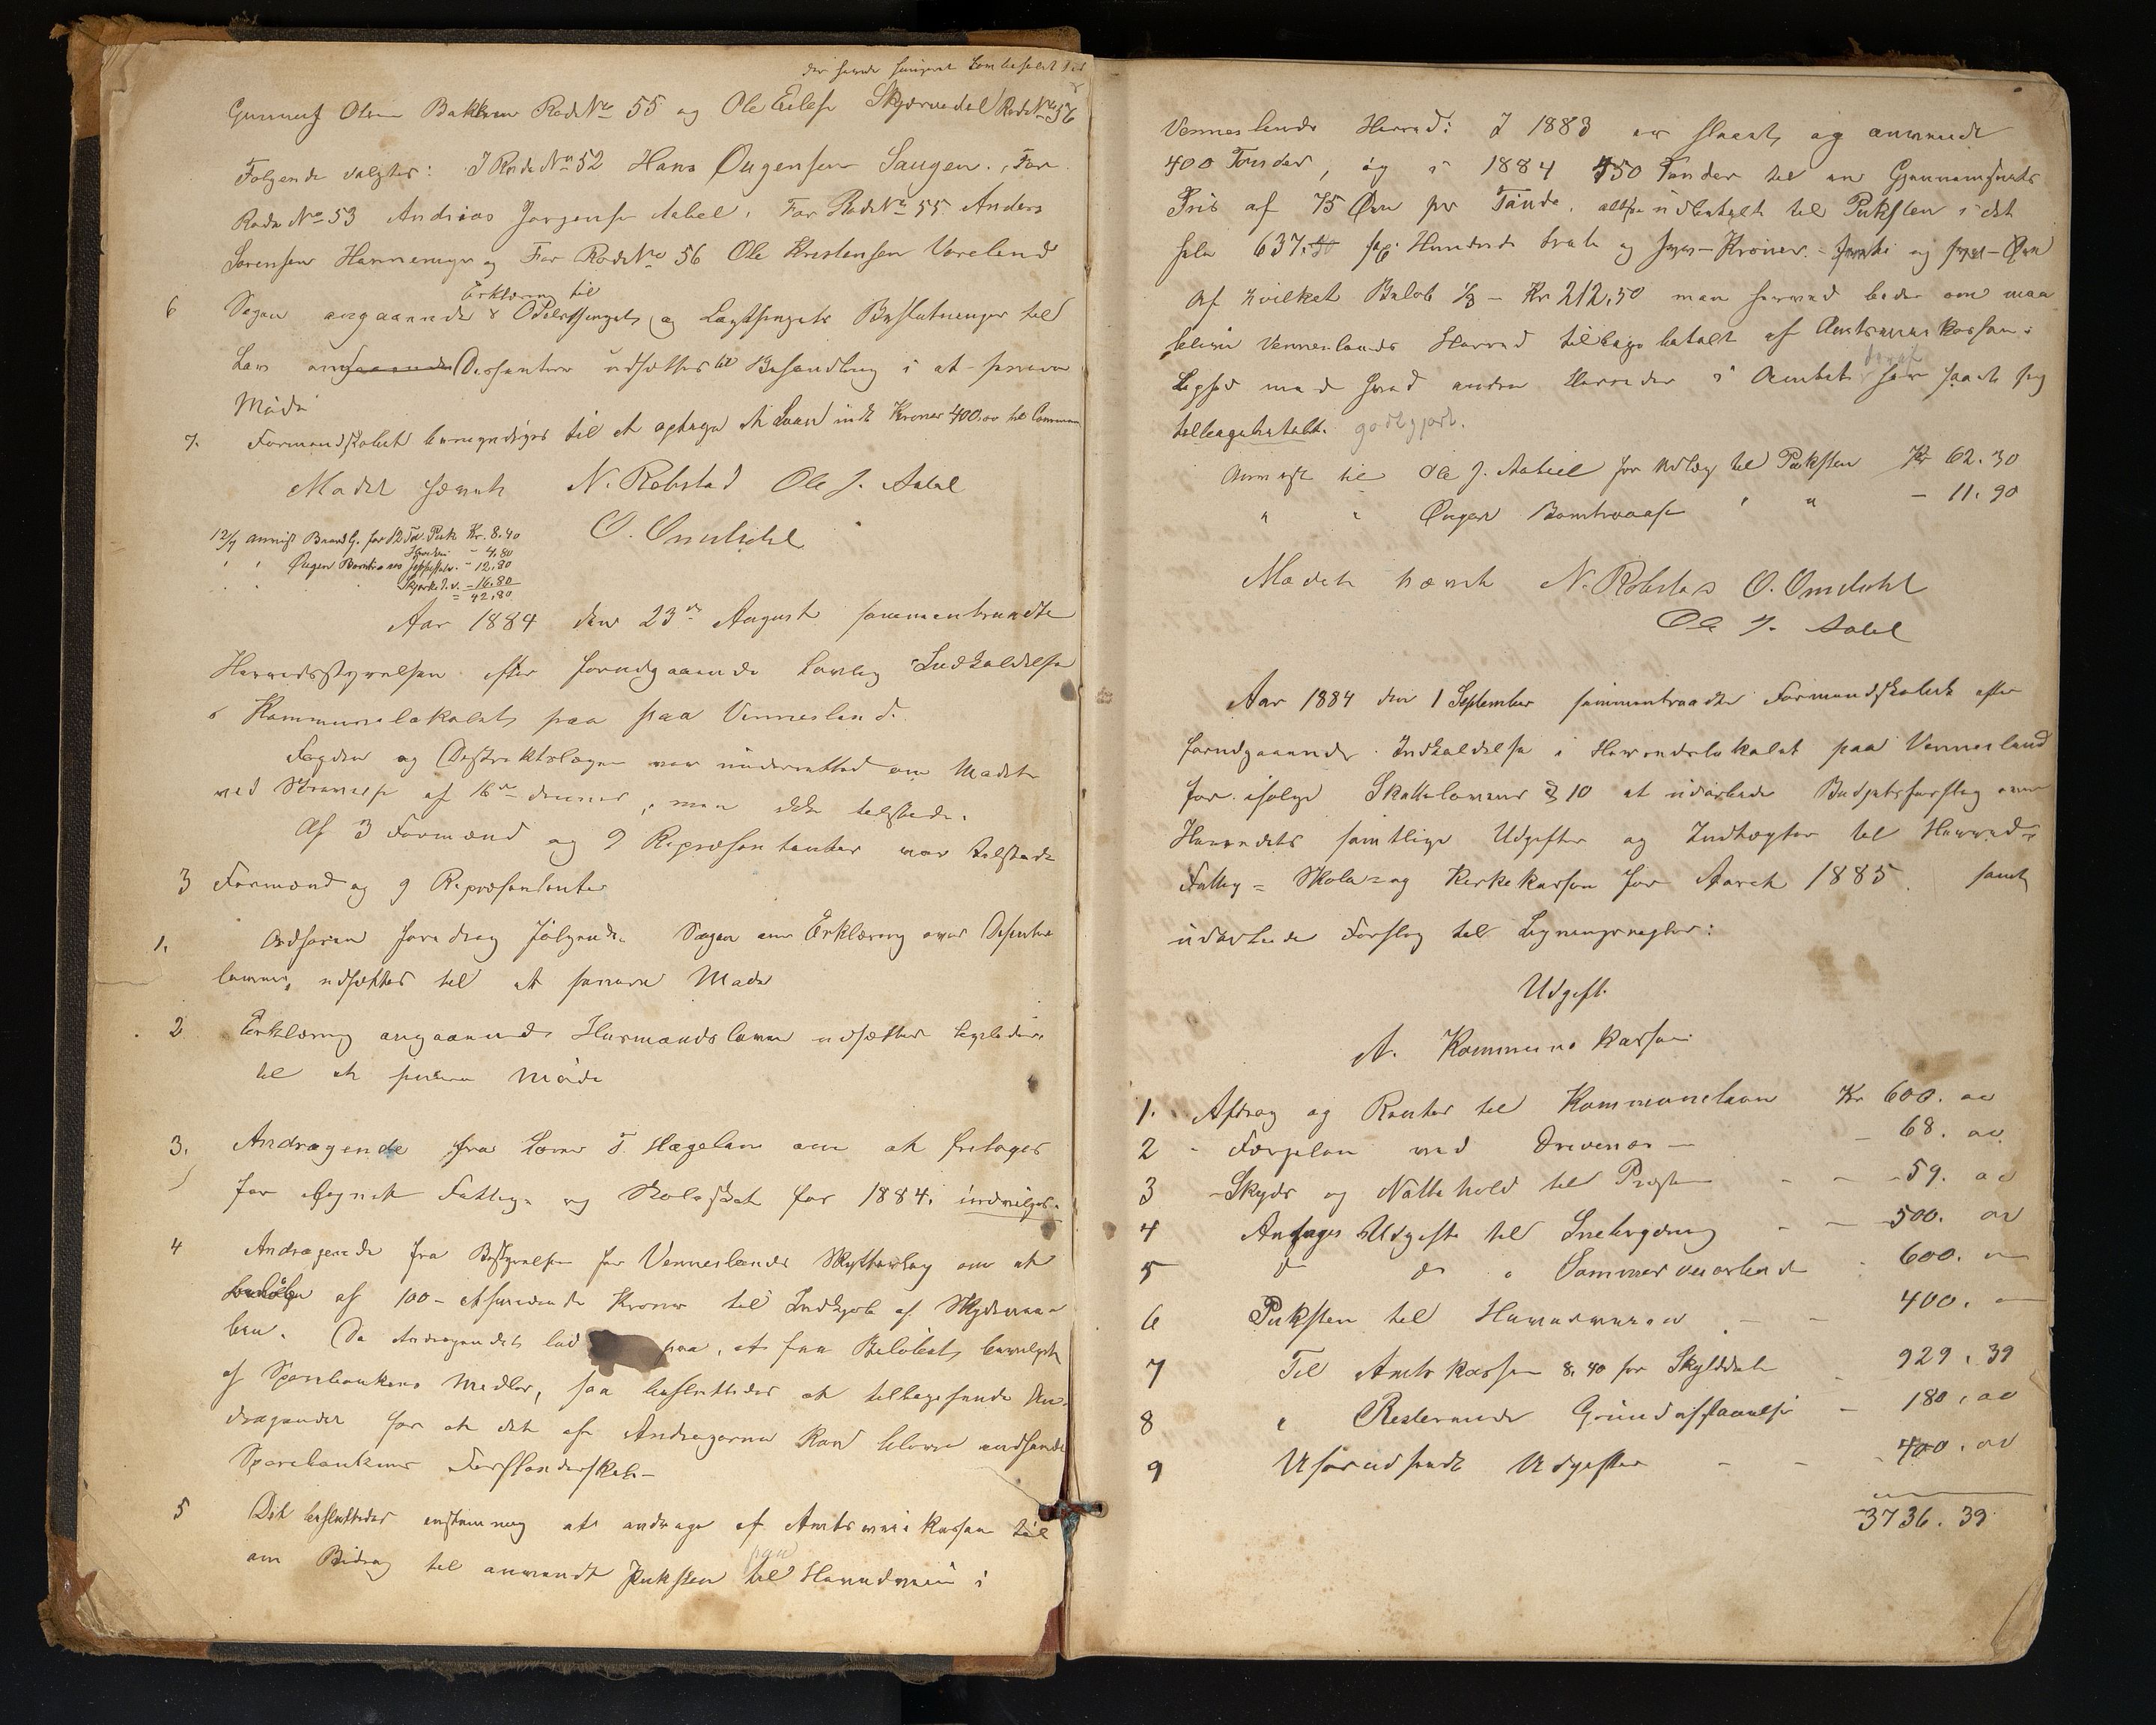 Gunnuf Olsen Bakken Rode No 55 og Ole Eilefs Skjærvedal Rode No 56
Følgende valgtes: I Rode No 52 Hans Øugensen Saugen. For
Rode No 53 Andreas Jørgensen Aabel. For Rode No 55 Anders
Sørensen og For Rode No 56 Ole Kristensen Voreland
Erklæring til
6 Sagen angaaende Odelsthingets og Lagthingets Beslutninger til
Lov Dissentere udsættes til Behandling i et senere
Møde
7. Formandskabet bemyndiges til at optage et Laan indt Kroner 400.00 til
Mødet hævet N. Robstad Ole J. Aabel
O. Omdahl
12/7 anvist for 12 Td. Puk Kr. 8.40
- 4.80
" " Øugen - 12.80
- 16.80
= 42.80
Aar 1884 den 23de August sammentraadte
Herredsstyrelsen efter forudgaaende Lovlig Indkaldelse
i Kommunelokalet paa paa Vennesland.
Fogden og Distriktslægen var underrettet om Mødet
ved Skrivelse af 16de dennes, men ikke tilstede.
Af 3 Formænd og 9 Repræsentanter var tilstede
3 Formænd og 9 Repræsentanter
1. Ordføren foredrog følgende. Sagen om Erklæring over Dissenter
loven, udsættes til et senere Møde
2 Erklæring angaaende Husmandsloven udsættes ligeledes
til et senere Møde
3. Andragende fra Hægeland om at fritages
for lignet Fattig- og Skoleskat for 1884. indvilges.
4 Andragende fra Bestyrelsen for Venneslands Skytterlag om at
af 100 - et hundrede Kroner til Indkjøb af Skydevaa-
ben. Da Andragendet lød paa, at faa Beløbet bevilget
af Sparebankens Midler, saa besluttedes at tilbagesende An-
dragendet for at det af Andragerne kan blive indsendt
Sparebankens Forstanderskab -
5 Det besluttedes enstemmig at andrage af Amtsveikassen til
om Bidrag til anvendt Puksten til Herredsveie i
paa
Venneslands Herred: I 1883 er slaaet og anvendt
400 Tønder, og i 1884 450 Tønder til en Gjennemsnits
Pris af 75 Øre pr Tønde. altsaa udbetalt til Puksten i det
hele 637.50 sex Hundrede tredive og syv - Kroner
Af hvilket Beløb 1/3 - Kr 212,50 man herved beder om maa
blive Venneslands Herred tilbage betalt af Amtsveikassen.
Ligesom med hvad andre Herreder i Amtet har faaet sig
deraf
tilbagebetalt. godtgjort.
Anvist til Ole J. Aabel for Udlæg til Puksten Kr 62.30
" " Øugen " " - 11.90
Mødet hævet N. Robstad O. Omdahl
Ole J. Aabel
Aar 1884 den 1 September sammentraadte Formandskabet efter
forudgaaende Indkaldelse i Herredslokalet paa Vennesland
for ifølge Skattelovens § 10 at udarbeide Budgetsforslag over
Herredets samtlige Udgifter og Indtægter til Herreds-
Fattig- Skole- og Kirkekassen for Aaret 1885. samt
udarbeide Forslag til Ligningsregler:
Udgift.
A. Kommunekassen
1. Afdrag og Renter til Kommunelaan Kr 600. 00
2 - Færgeløn ved Drivenes - - 68. 00
3 - Skyds og Nattehold til Præsten - - - 59. 00
4 Antages Udgifte til Snebrydning - - 500. 00
5 do do " Sommerveiarbeide - 600. 00
6 Puksten til Herredsveiene - - 400. 00
7 Til Amtskassen 8,40 pr Skylddaler - 929. 39
8 " Resterende Grundafstaaelse - 180. 00
9 Uforudseedte Udgifter - - - 400. 00
3736. 39